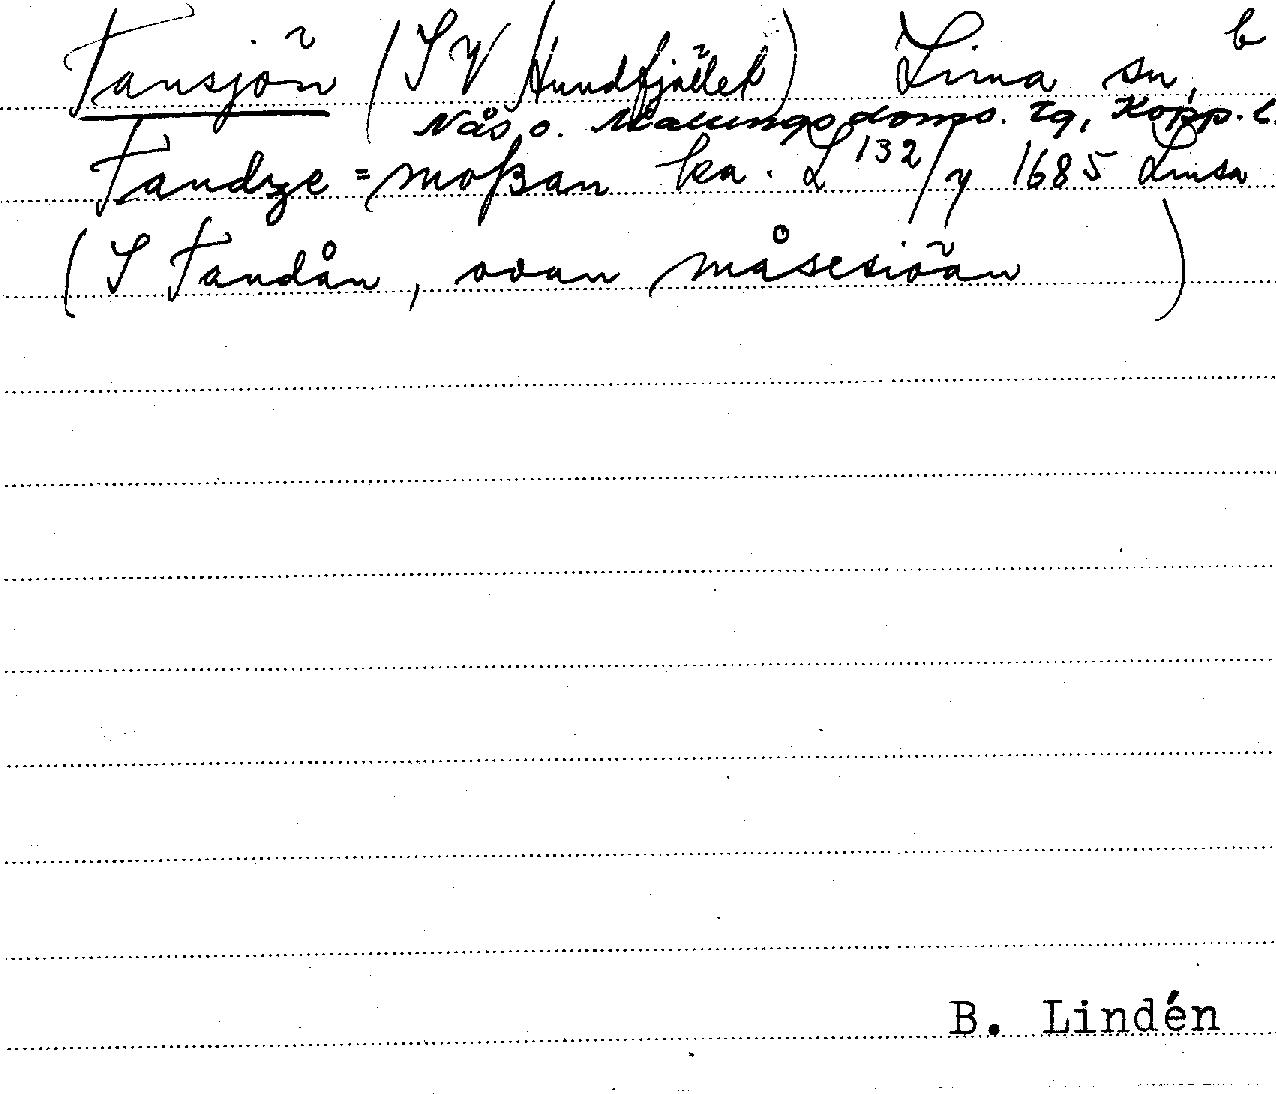 Tansjön (SV Hundfjället) Lima sn, b
Nås o. Malungs doms. tg, Kopp. l.
Tandze=moßan ka. L 132/y 1685 Limsa
(S Tandån, ovan måsesiöan )
B. Lindén